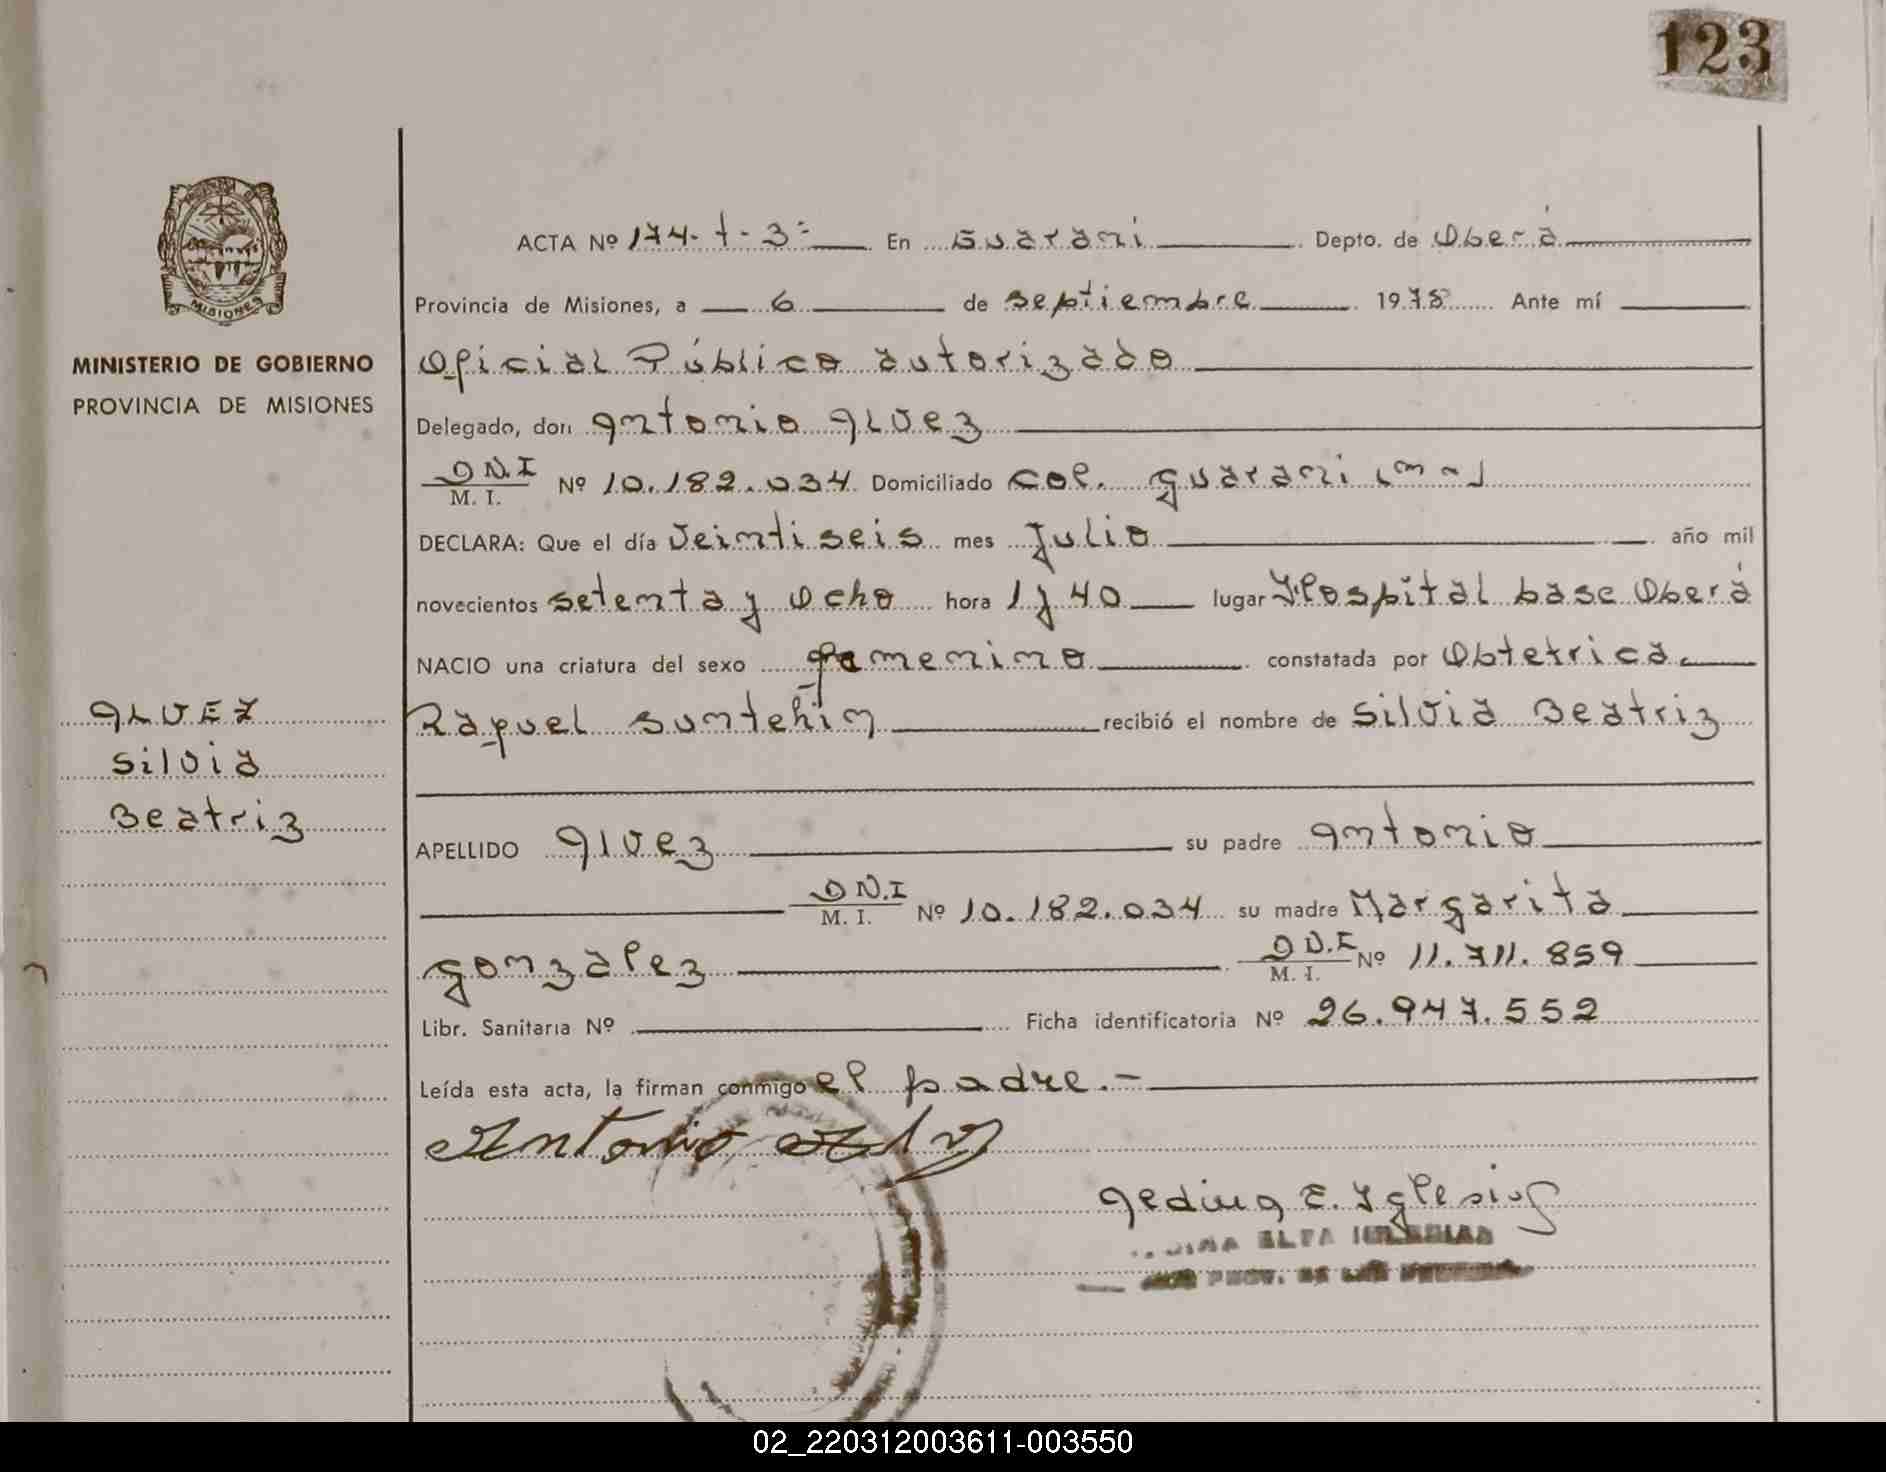 123
MISIONES
MINISTERIO DE GOBIERNO
PROVINCIA DE MISIONES
ALVEZ
Silvia
Beatriz
ACTA Nº 174-t-3- En Guarani Depto. de Oberá
Provincia de Misiones, a 6 de septiembre 1978 Ante mí
Oficial Público autorizado
Delegado, don Antonio Alvez
D.N.I
M. I. Nº 10.182.034 Domiciliado Col. Guarani (Mns)
DECLARA: Que el día veintiseis mes Julio año mil
novecientos setenta y ocho hora 1 y 40 lugar Hospital base Oberá
NACIO una criatura del sexo femenino constatada por Obtetrica
Raquel Suntehin recibió el nombre de Silvia Beatriz
APELLIDO Alvez su padre Antonio
D.N.I
M. I. Nº 10.182.034 su madre Margarita
Gonzalez D.N.I
M. I. Nº 11.711.859
Libr. Sanitaria Nº Ficha identificatoria Nº 26.947.552
Leída esta acta, la firman conmigo el padre.-
Antonio Alvez
E. Yglesias
02_220312003611-003550